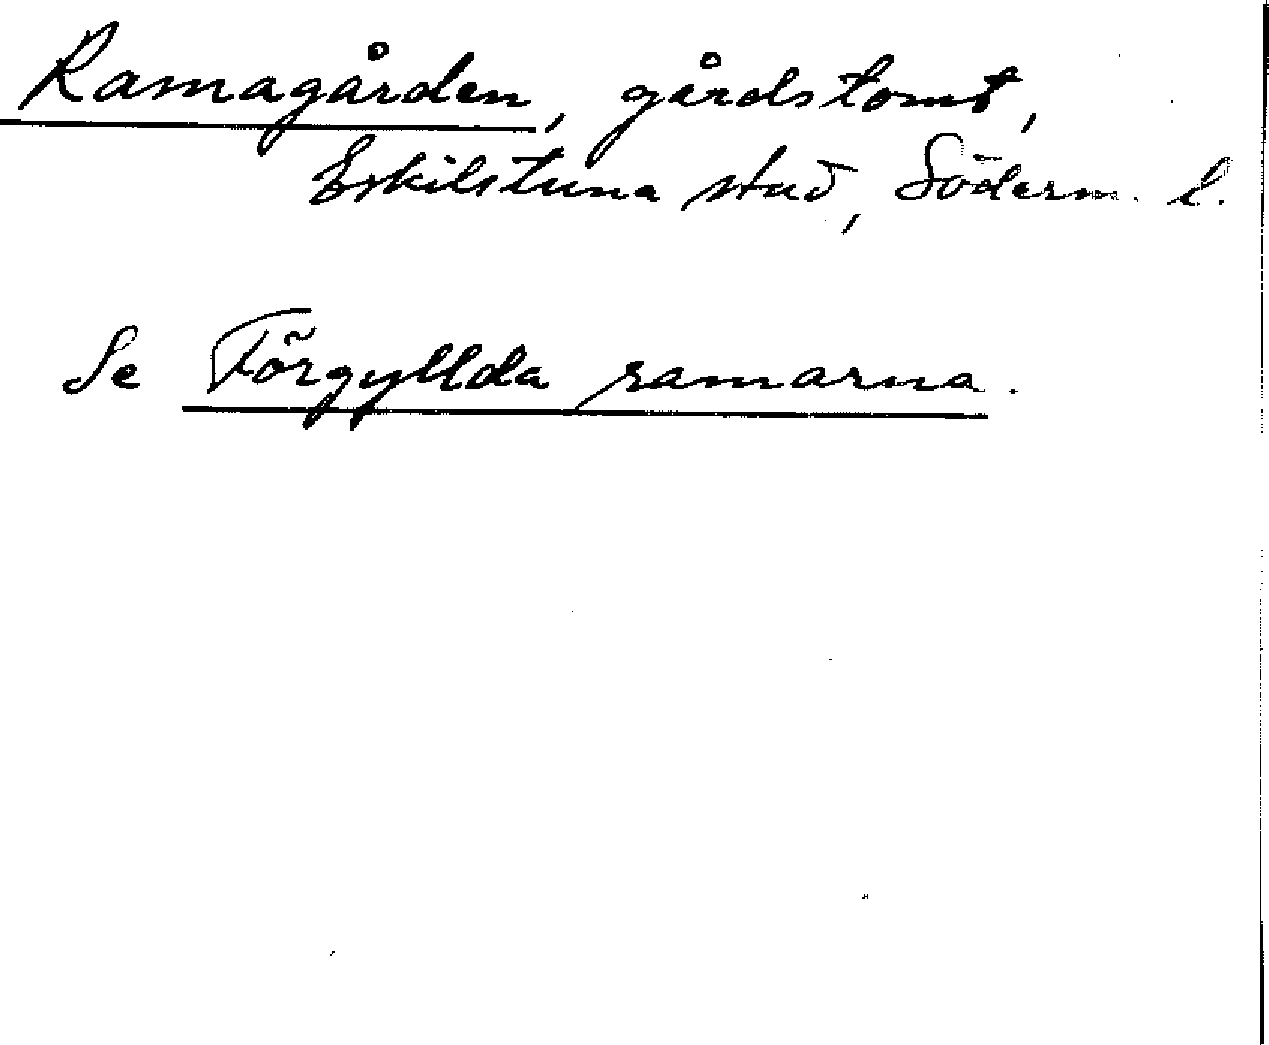 Ramagården, gårdstomt,
Eskilstuna stad, Söderm. l.
Se Förgyllda ramarna.